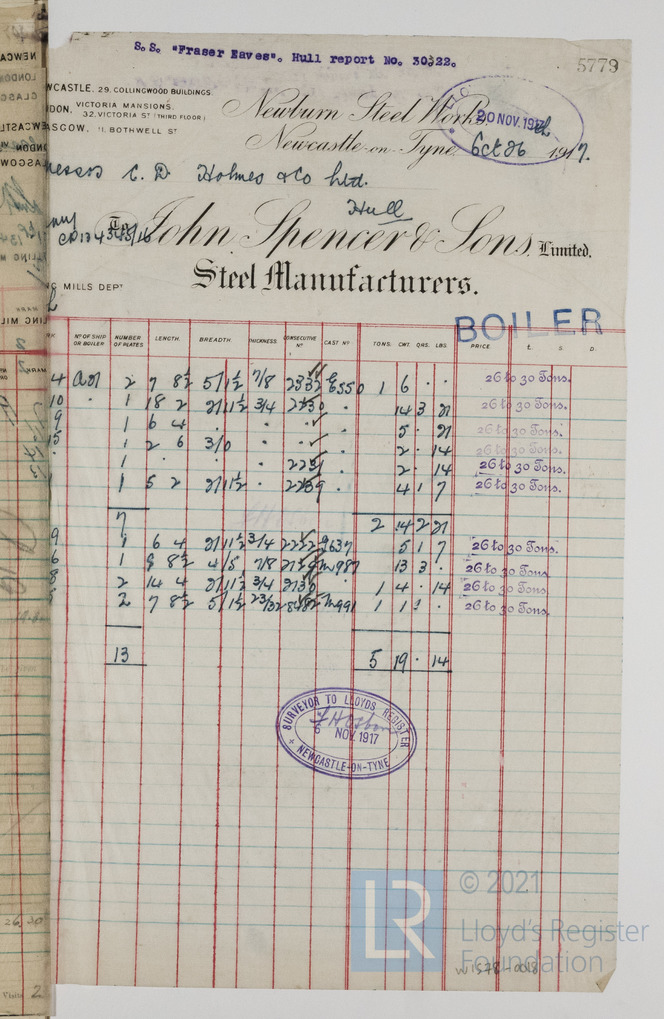 S.S. "Fraser Eaves". Hull report No. 30322.
5779
WCASTLE. 29, COLLINGWOOD BUILDINGS.
DON. VICTORIA MANSIONS.
32, VICTORIA ST (THIRD FLOOR)
ASGOW. 11, BOTHWELL ST
Newburn Steel Works,
20 NOV. 1917
Newcastle-on-Tyne, Oct 26th 1917.
Messrs C. D. Holmes & Co Ltd.
Hull
To John Spencer & Sons, Limited.
Steel Manufacturers.
G MILLS DEPT
BOILER
Nº OF SHIP OR BOILER NUMBER OF PLATES LENGTH. BREADTH. THICKNESS CONSECUTIVE Nº CAST Nº TONS. CWT. QRS. LBS PRICE £. S. D.
4 2 7 8½ 5/1½ 7/8 1 6 . . 26 to 30 Tons.
10 . 1 18 2 2/11½ 3/4 2230 . 14 3 21 26 to 30 Tons.
9 1 6 4 . . . . 5 . 21 26 to 30 Tons.
15 1 2 6 3/0 . . . 2 . 14 26 to 30 Tons.
. 1 . . . . 2 . 14 26 to 30 Tons.
1 1 5 2 2/11½ . 2259 . 4 1 7 26 to 30 Tons.
7 2 14 2 21
9 1 6 4 2/11½ 3/4 2222 9637 5 1 7 26 to 30 Tons.
6 1 9 8½ 4/5 7/8 M987 13 3 . 26 to 30 Tons
8 2 14 4 2/11½ 3/4 . 1 4 . 14 26 to 30 Tons.
2 7 8½ 5/1½ 23/32 M991 1 1 1 . 26 to 30 Tons.
13 5 19 . 14
SURVEYOR TO LLOYDS REGISTER
6 NOV. 1917
NEWCASTLE-ON-TYNE
LR
© 2021
Lloyd's Register
Foundation
W1578-0018
26.30
Visits 2